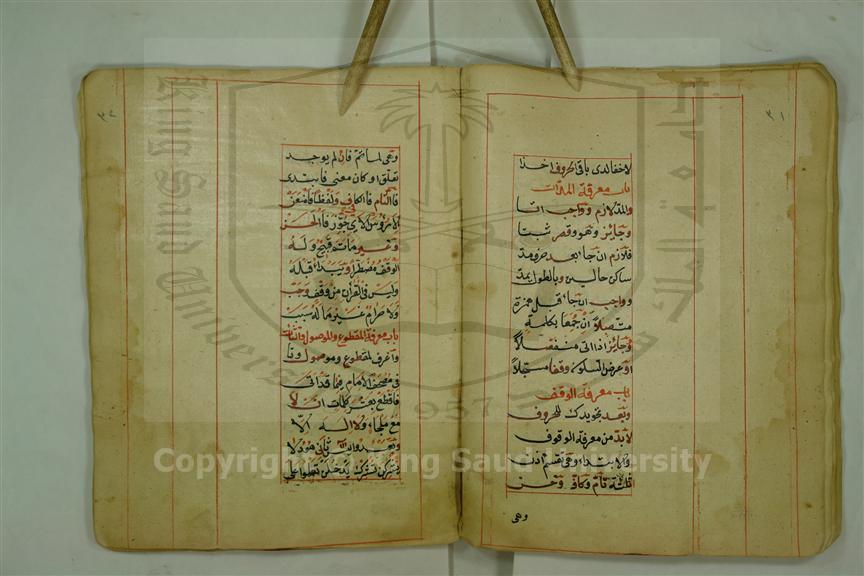 ٣١
لاخفا لدى باقى الحروف اخذا
باب معرفة المدات
والمد لازم وواجب اتا
وجايز وهو وقصر ثبتا
فلازم ان جا بعد حرف مد
ساكن حالين وبالطول يمد
وواجب ان جا قبل همزة
متصلا ان جمعا بكلمة
وجايز اذا اتى منفصلا
او عرض السكون وقفا مسجلا
باب معرفة الوقف
وبعد تجويدك للحروف
لا بد من معرفة الوقوف
والابتداء وهى تقسم اذن
ثلثة تام وكاف وحسن
وهى
٣٢
وهى لما تم فان لم يوجد
تعلق او كان معنى فابتدى
فالتام فالكافى ولفظا فامنعن
الا رؤس الاى جوز فالحسن
وغير ما تم قبيح وله
الوقف مضطرا ويبدا قبله
وليس فى القران من وقف وجب
ولا حرام غير ما له سبب
باب معرفة المقطوع والموصول والتاءات
واعرف لمقطوع وموصول وتا
فى مصحف الامام فيما قد اتى
فاقطع بعشر كلمات ان لا
مع ملجا ولا اله الا
وتعبدوا يس ثانى هود لا
يشركن تشرك يدخلن تعلوا على
Copyright © King Saud University
King Saud University
1957